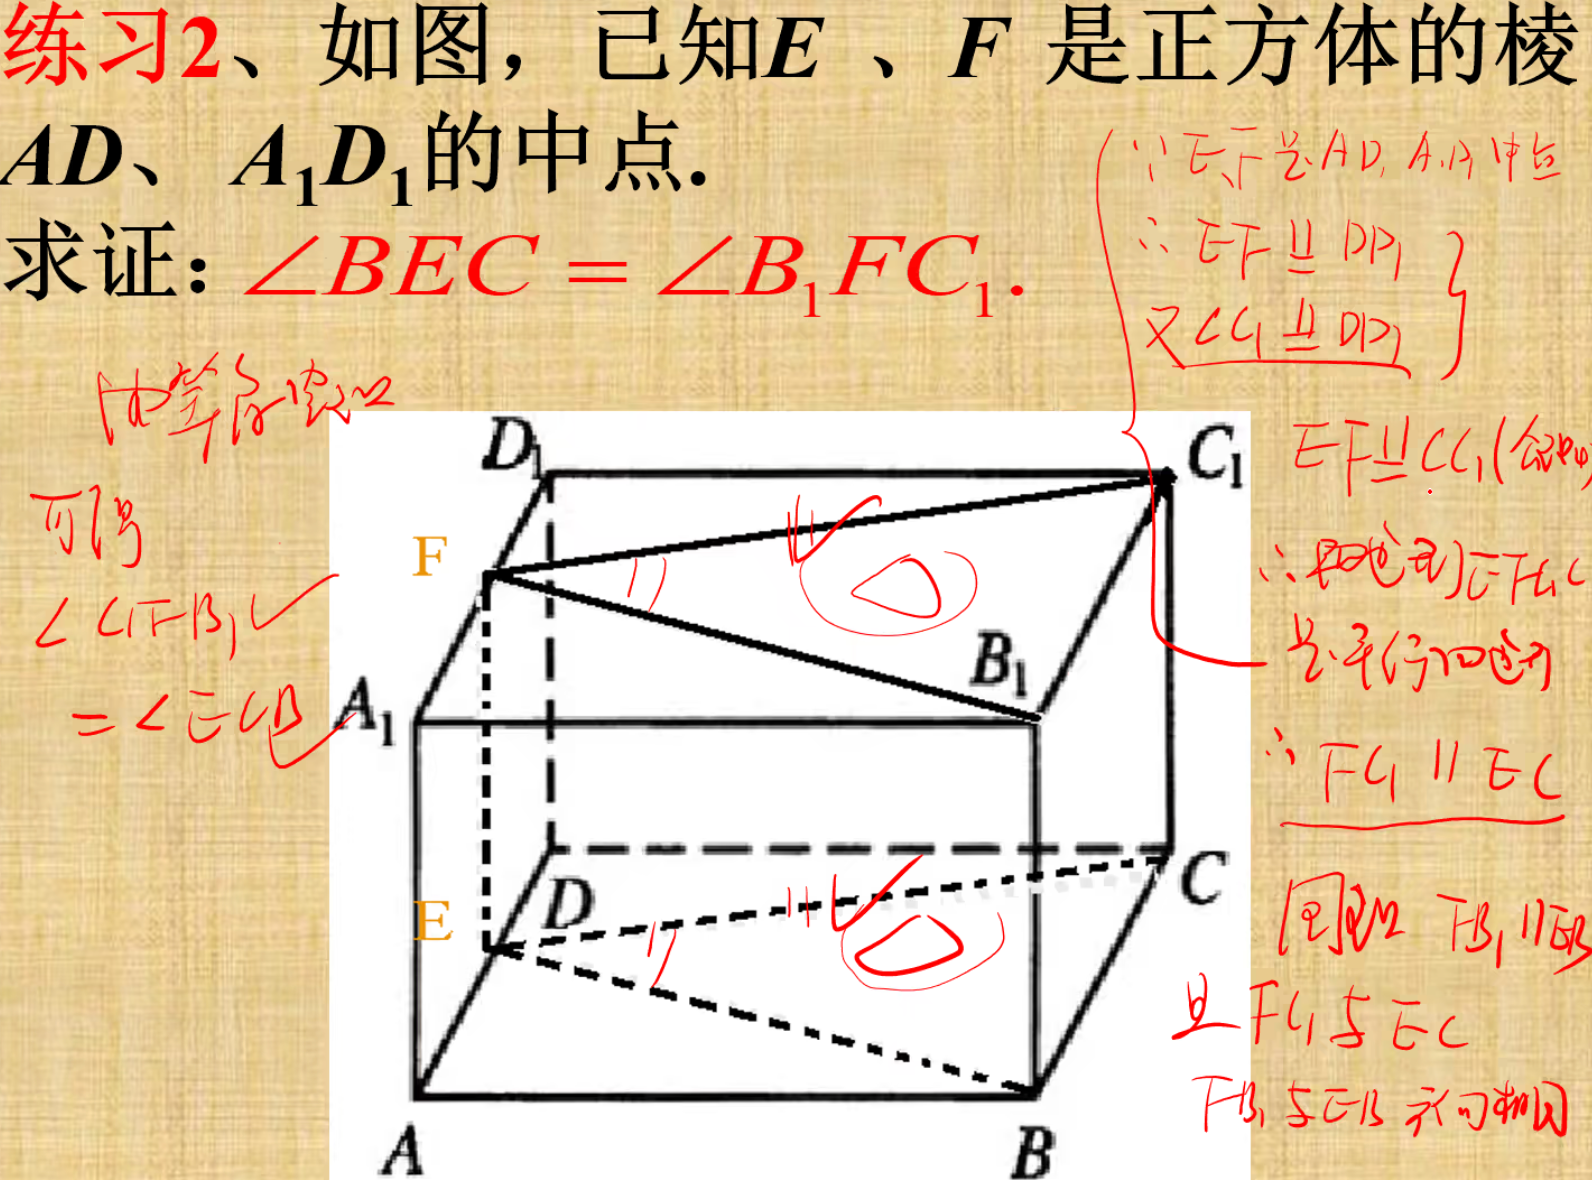 练习2、如图，已知E 、F 是正方体的棱
AD、A₁D₁的中点.
求证：∠BEC = ∠B₁FC₁.
∵ E、F是AD, A₁D₁中点
∴ EF ∥= DD₁
又CC₁ ∥= DD₁
EF ∥= CC₁
∴ 四边形EFC₁C
是平行四边形
∴ FC₁ ∥ EC
同理 FB₁ ∥ EB
且FC₁与EC
FB₁与EB 方向相同
由等角定理
可得
∠C₁FB₁
= ∠ECB
D₁
C₁
F
B₁
A₁
D
C
E
A
B